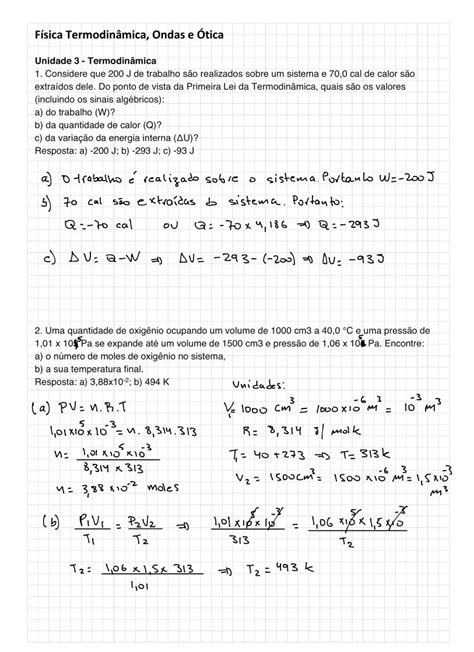 Física Termodinâmica, Ondas e Ótica
Unidade 3 - Termodinâmica
1. Considere que 200 J de trabalho são realizados sobre um sistema e 70,0 cal de calor são
extraídos dele. Do ponto de vista da Primeira Lei da Termodinâmica, quais são os valores
(incluindo os sinais algébricos):
a) do trabalho (W)?
b) da quantidade de calor (Q)?
c) da variação da energia interna (ΔU)?
Resposta: a) -200 J; b) -293 J; c) -93 J
a) O trabalho é realizado sobre o sistema. Portanto W=-200 J
b) 70 cal são extroídas do sistema. Portanto:
Q=-70 cal ou Q=-70 x 4,186 ⇒ Q=-293 J
c) ΔU= Q-W ⇒ ΔU= -293-(-200) ⇒ ΔU=-93J
2. Uma quantidade de oxigênio ocupando um volume de 1000 cm3 a 40,0 °C e uma pressão de
1,01 x 10⁵ Pa se expande até um volume de 1500 cm3 e pressão de 1,06 x 10⁵ Pa. Encontre:
a) o número de moles de oxigênio no sistema,
b) a sua temperatura final.
Resposta: a) 3,88x10⁻²; b) 494 K
Unidades:
(a) PV= n.R.T V₁=1000 cm³ = 1000x10⁻⁶ m³ = 10⁻³ m³
1,01x10⁵x10⁻³= n. 8,314.313 R= 8,314 J/molk
n= 1,01x10⁵x10⁻³ / 8,314 x 313 T₁= 40+273 ⇒ T= 313k
V₂ = 1500cm³= 1500 x10⁻⁶ m³ = 1,5x10⁻³ m³
n= 3,88 x10⁻² moles
(b) P₁V₁/T₁ = P₂V₂/T₂ ⇒ 1,01x10⁵x10⁻³/313 = 1,06 x10⁵x1,5x10⁻³/T₂
T₂= 1,06 x 1,5x 313/1,01 ⇒ T₂=493 k